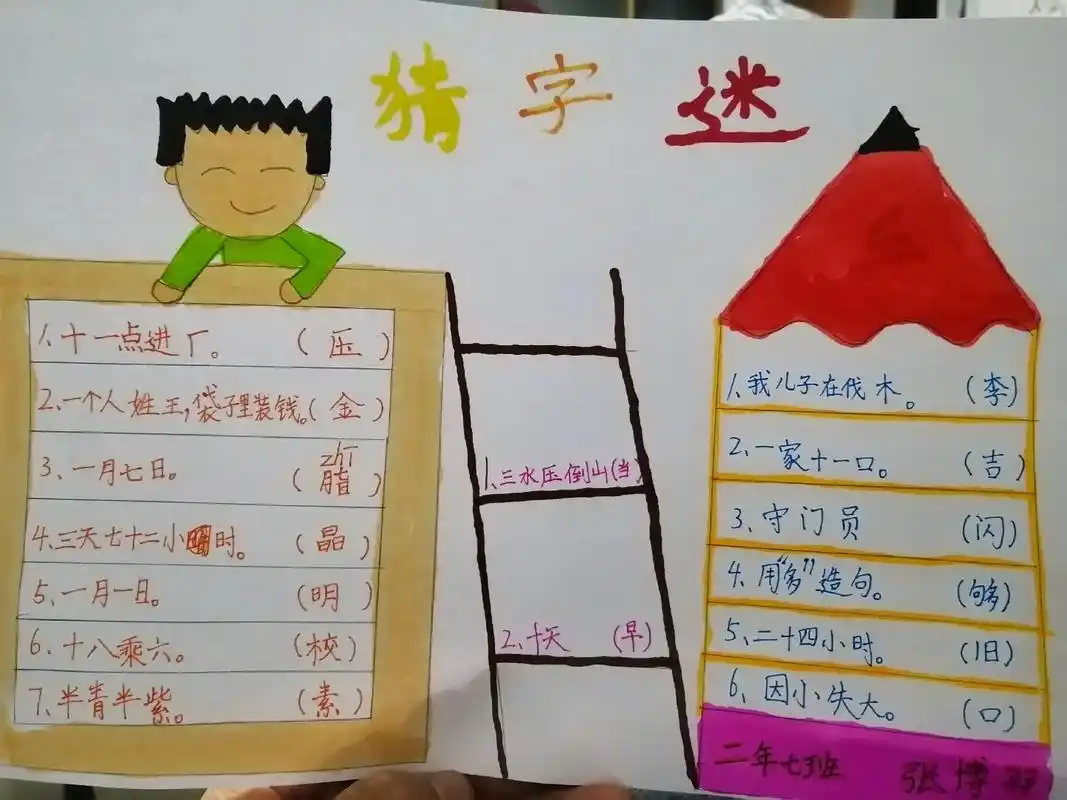 猜字迷
1、十一点进厂。(压)
2、一个人姓王,袋子里装钱。(金)
zhī
3、一月七日。(脂)
4、三天七十二小时。(晶)
5、一月一日。(明)
6、十八乘六。(校)
7、半青半紫。(素)
1、三水压倒山(当)
2、十天 (早)
1、我儿子在伐木。(李)
2、一家十一口。(吉)
3、守门员 (闪)
4、用“多”造句。(够)
5、二十四小时。(旧)
6、因小失大。(口)
二年七班 张博